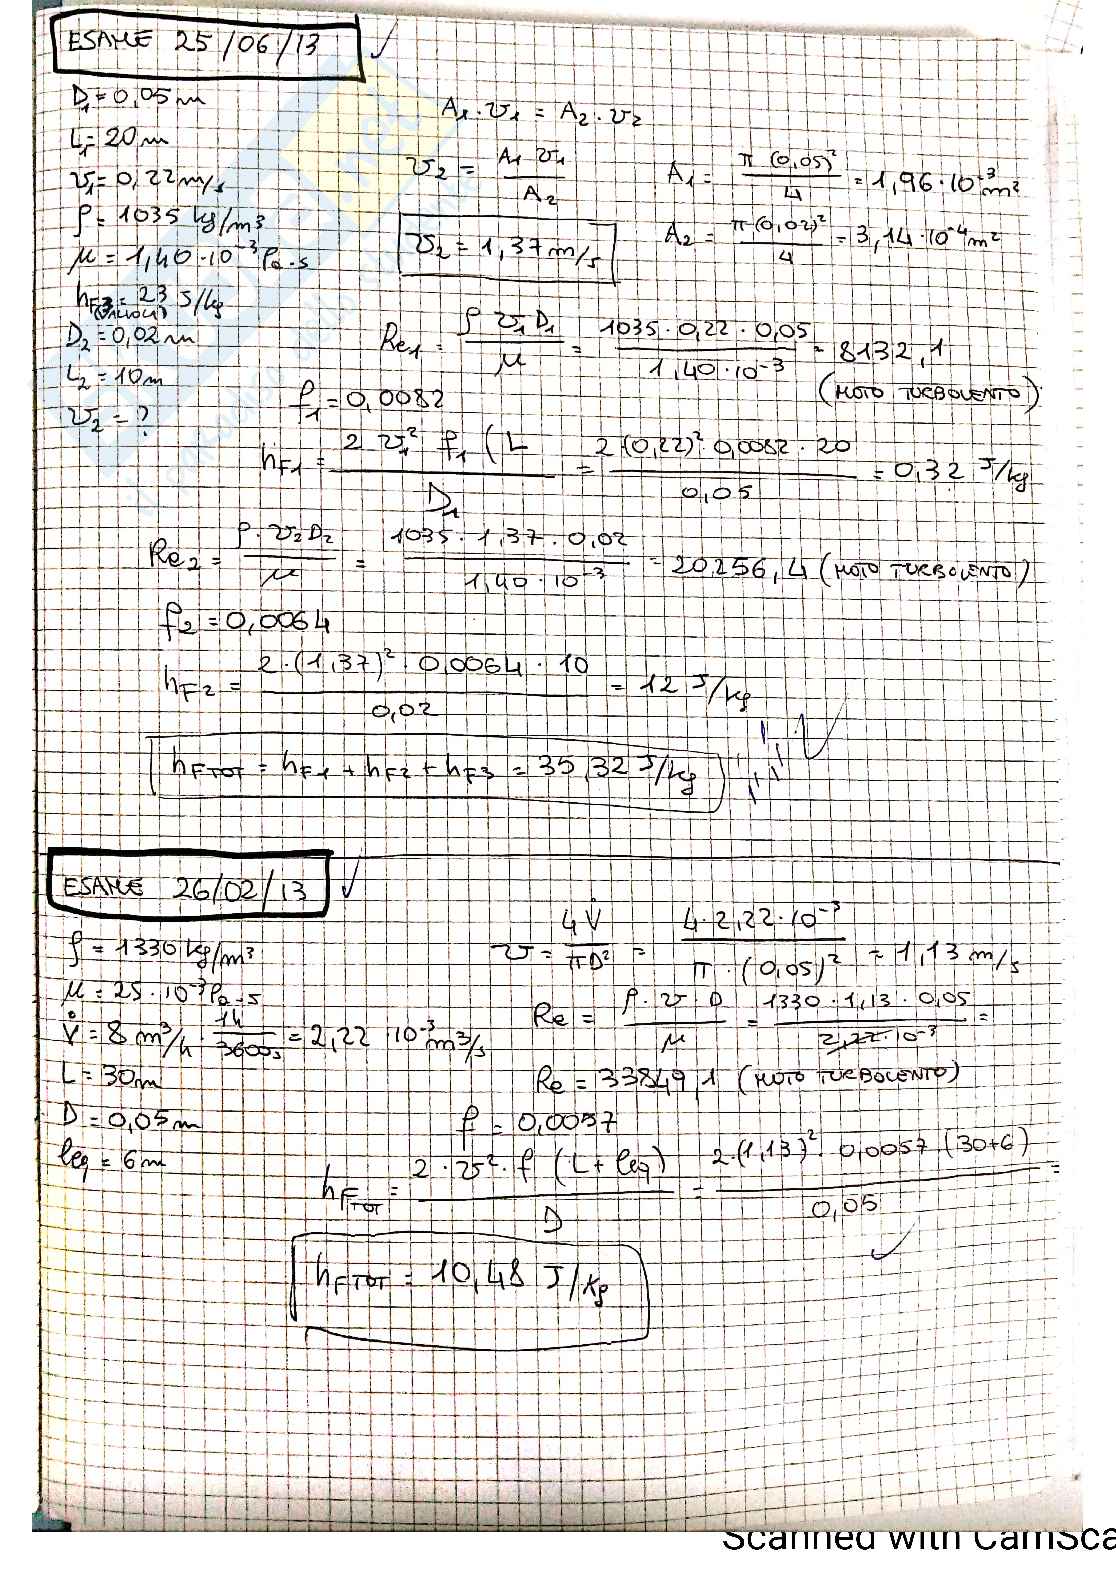 ESAME 25/06/13
D₁=0,05m
L₁=20m
v₁=0,22m/s
ρ=1035 kg/m³
μ=1,40·10⁻³Pa·s
hF3=23 J/kg
D₂=0,02m
L₂=10m
v₂=?
A₁·v₁=A₂·v₂
v₂ = A₁ v₁ / A₂
A₁= π (0,05)² / 4 =1,96·10⁻³m²
v₂=1,37m/s
A₂= π(0,02)² / 4 =3,14·10⁻⁴m²
Re₁ = ρ v₁ D₁ / μ = 1035·0,22·0,05 / 1,40·10⁻³ = 8132,1
(MOTO TURBOLENTO)
f₁=0,0082
hF1= 2 v₁² f₁ (L / D₁ = 2·(0,22)²·0,0082·20 / 0,05 =0,32 J/kg
Re₂= ρ·v₂D₂ / μ = 1035·1,37·0,02 / 1,40·10⁻³ =20256,4 (MOTO TURBOLENTO)
f₂=0,0064
hF2 = 2·(1,37)²·0,0064·10 / 0,02 = 12 J/kg
hFTOT = hF1 + hF2 + hF3 = 35,32 J/kg
ESAME 26/02/13
ρ=1330kg/m³
μ=25·10⁻³Pa·s
V̇=8m³/h· 1h / 3600s =2,22·10⁻³m³/s
L=30m
D=0,05m
leq=6m
v= 4V̇ / πD² = 4·2,22·10⁻³ / π·(0,05)² =1,13m/s
Re = ρ·v·D / μ = 1330·1,13·0,05 / 2,22·10⁻³ =
Re=33849,1 (MOTO TURBOLENTO)
f=0,0057
hFTOT = 2·v²·f (L+leq) / D = 2·(1,13)²·0,0057·(30+6) / 0,05 =
hFTOT=10,48 J/kg
Scanned with CamSca